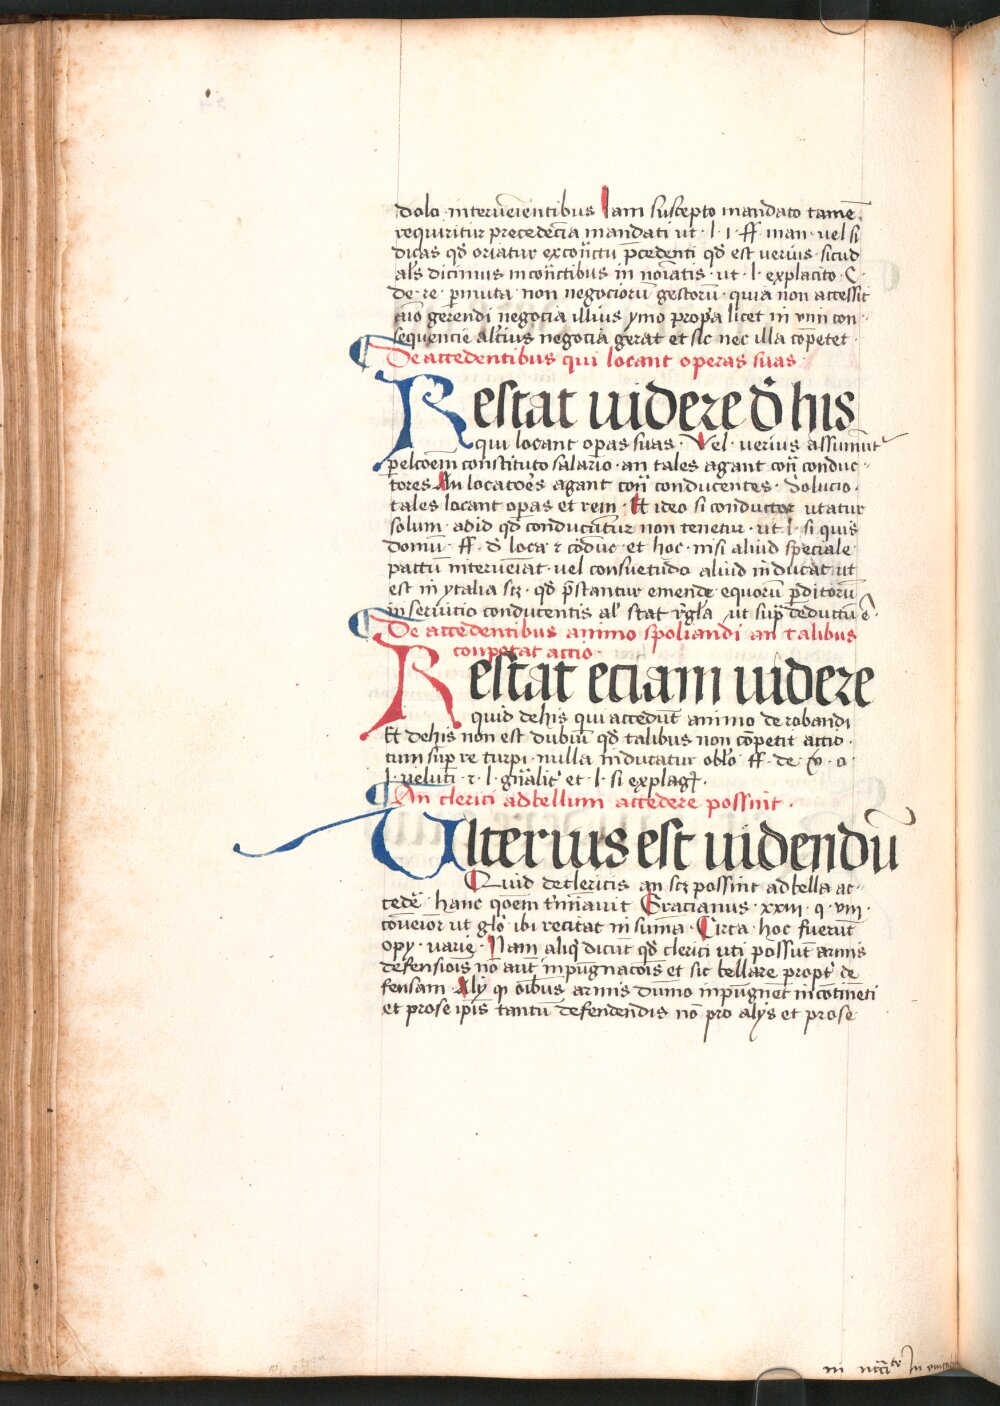 dolo interueniēntibus Iam suscepto mandato tamē
requiritur precedēcia mandati ut · l · i · ff man · uel si
dicas qđ oriatur ex cōtractu p̄cedenti qđ est uerius · sicud
al's dicimus in cōtractibus in noīatis · ut · l · ex placito · C ·
de · re · p̄muta · non negociorū gestorū · quia non accessit
aīo gerendi negocia illius ymo prop̄a licet in vnū con-
sequencie alt'ius negocia gerat et sic nec illa cōpetet ·
De accedentibus qui locant operas suas ·
Restat uidere đ his
qui locant op̄as suas · Vel · uerius assumūt
pelcoēm constituto salario · an tales agant cont̄ conduc-
tores An locatorēs agant cont̄ conducentes · Solucio ·
tales locant op̄as et rem · Et ideo si conductor utatur
solum · ad id qđ conducūtur non tenetur · ut · l · si quis
domū · ff · đ loca · ꝛ cōduc · et hoc · nisi aliud speciale
pactū interueniat · uel consuetudo aliud inducat · ut
est in ytalia scꝫ · qđ p̄stantur emende equorū p̄ditorū
in seruitio conducentis al' stat r̄gla · ut sup̄ deductū ē ·
De accedentibus animo spoliandi an talibus
conpetat accio ·
Restat eciam uidere
quid de his qui accedūt animo derobandi
Et de his non est dubiū qđ talibus non cōpetit accio ·
cum sup̄ re turpi · nulla inducatur obl'o · ff · de · v · o ·
l · ueluti · ꝛ · l · gn̄alit' et · l · si ex plaḡ ·
An clerici ad bellum accedere possint ·
Ulterius est uidendū
Quid de clericis an scꝫ possint ad bella ac-
ceder̄ · hanc qōem t'minauit Gracianus · xxiii · q · viii ·
conueior ut glo' ibi recitat in suma · Circa · hoc fuerūt
opy · uarie · Nam aliq̄ dicūt qđ clerici uti possūt armis
defensiois nō aut̄ inpugnacōis et sic bellare propt' de
fensam · Aly qđ oībus armis dūmo inpugnēt in cōtinēti
et pro se ip̄is tantū defendendis nō pro alys et pro se